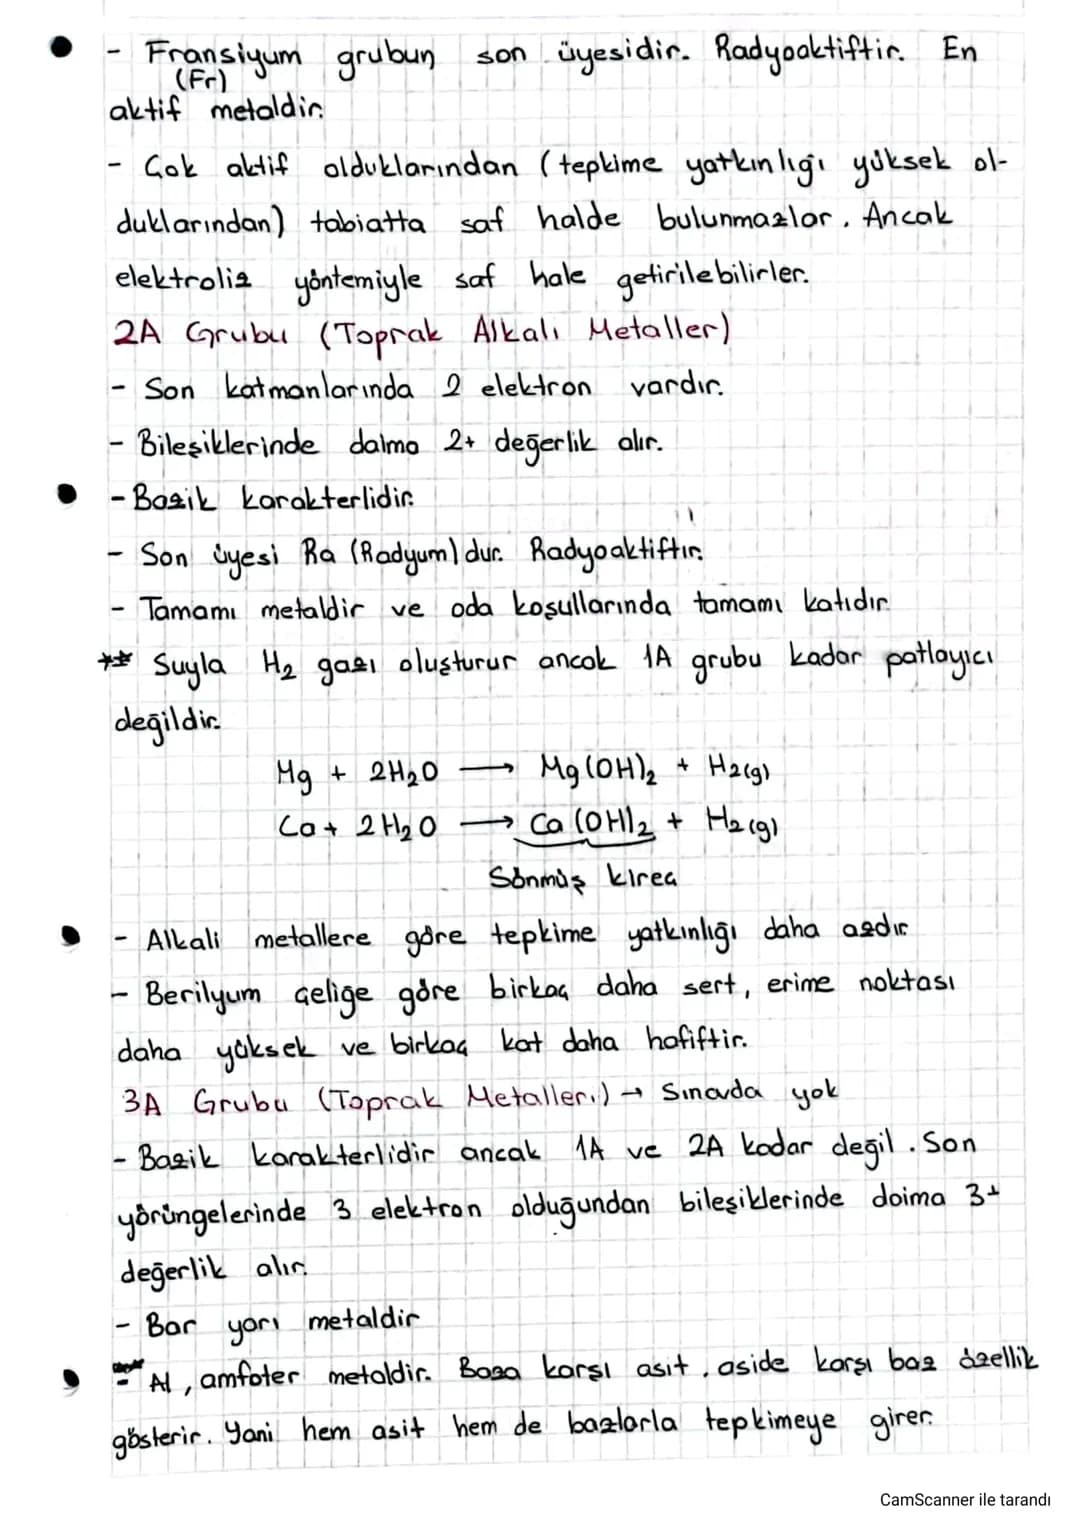 - Fransiyum grubun son üyesidir. Radyoaktiftir. En
(Fr)
aktif metaldir.
- Çok aktif olduklarından (tepkime yatkınlığı yüksek ol-
duklarından) tabiatta saf halde bulunmazlar. Ancak
elektroliz yöntemiyle saf hale getirilebilirler.
2A Grubu (Toprak Alkali Metaller)
- Son katmanlarında 2 elektron vardır.
- Bileşiklerinde daima 2+ değerlik alır.
- Bazik karakterlidir.
- Son üyesi Ra (Radyum) dur. Radyoaktiftir.
- Tamamı metaldir ve oda koşullarında tamamı katıdır.
** Suyla H₂ gazı oluşturur ancak 1A grubu kadar patlayıcı
değildir.
Mg + 2H₂O → Mg(OH)₂ + H₂(g)
Ca + 2H₂O → Ca(OH)₂ + H₂(g)
Sönmüş kireç
- Alkali metallere göre tepkime yatkınlığı daha azdır
- Berilyum çeliğe göre birkaç daha sert, erime noktası
daha yüksek ve birkaç kat daha hafiftir.
3A Grubu (Toprak Metalleri) → Sınavda yok
- Bazik karakterlidir ancak 1A ve 2A kadar değil. Son
yörüngelerinde 3 elektron olduğundan bileşiklerinde daima 3+
değerlik alır.
- Bor yarı metaldir
- Al, amfoter metaldir. Baza karşı asit, aside karşı baz özellik
gösterir. Yani hem asit hem de bazlarla tepkimeye girer.
CamScanner ile tarandı